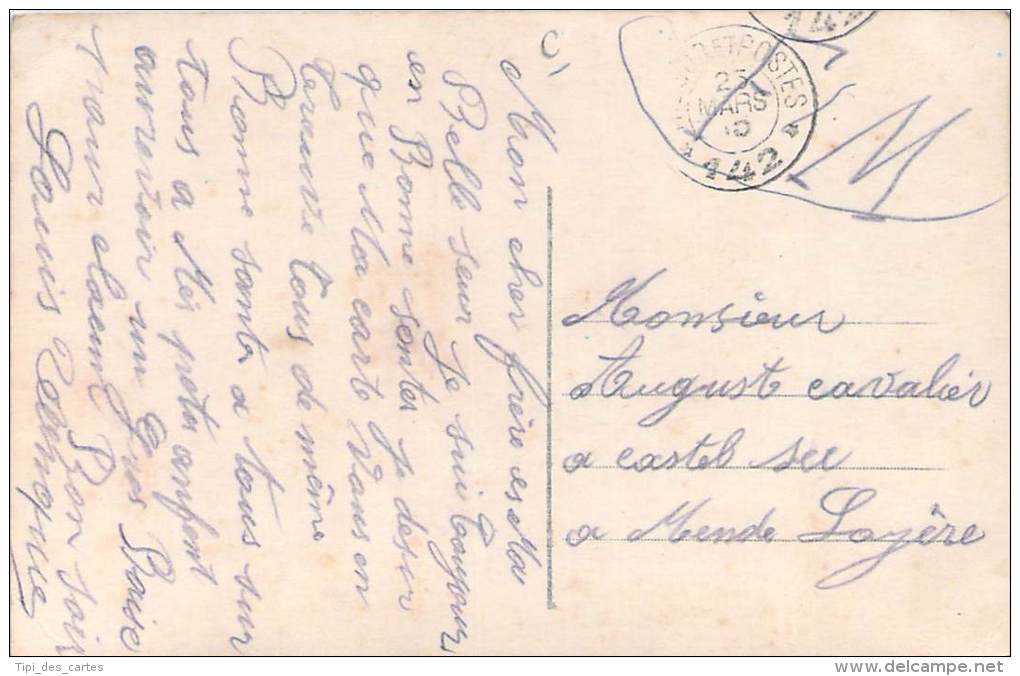 Mon cher frère es Ma
Belle seur Je sui tayours
en Bonne senter je desir
que Ma carte vous en
Treuve tous de même
Bonne santer a tous sur
tous a Mes petis enfent
aurevoir un Gros Baise
pour chacun Bon soir
Louis
TRESOR ET POSTES
25
MARS
15
* 142 *
142
M
Monsieur
August cavalier
a castel sec
a Mende Lozère
Tipi_des_cartes
delcampe.net